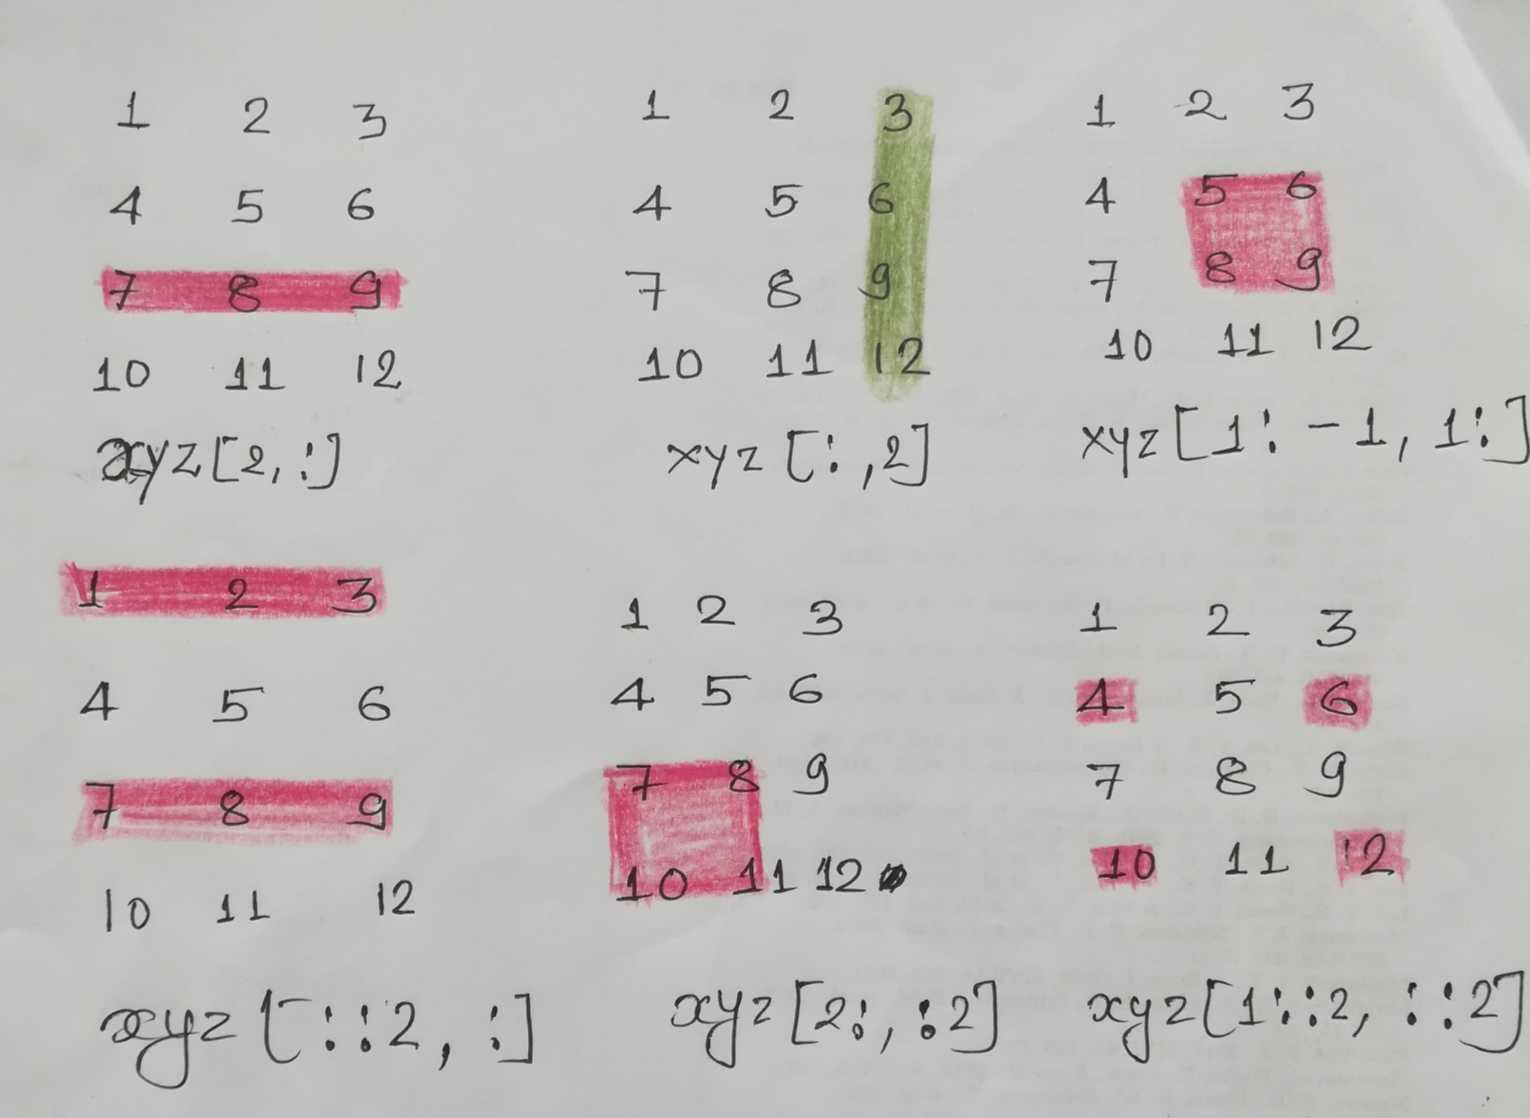 1 2 3
4 5 6
7 8 9
10 11 12
xyz[2,:]
1 2 3
4 5 6
7 8 9
10 11 12
xyz[:,2]
1 2 3
4 5 6
7 8 9
10 11 12
xyz[1:-1, 1:]
1 2 3
4 5 6
7 8 9
10 11 12
xyz[::2, :]
1 2 3
4 5 6
7 8 9
10 11 12
xyz[2:, :2]
1 2 3
4 5 6
7 8 9
10 11 12
xyz[1::2, ::2]